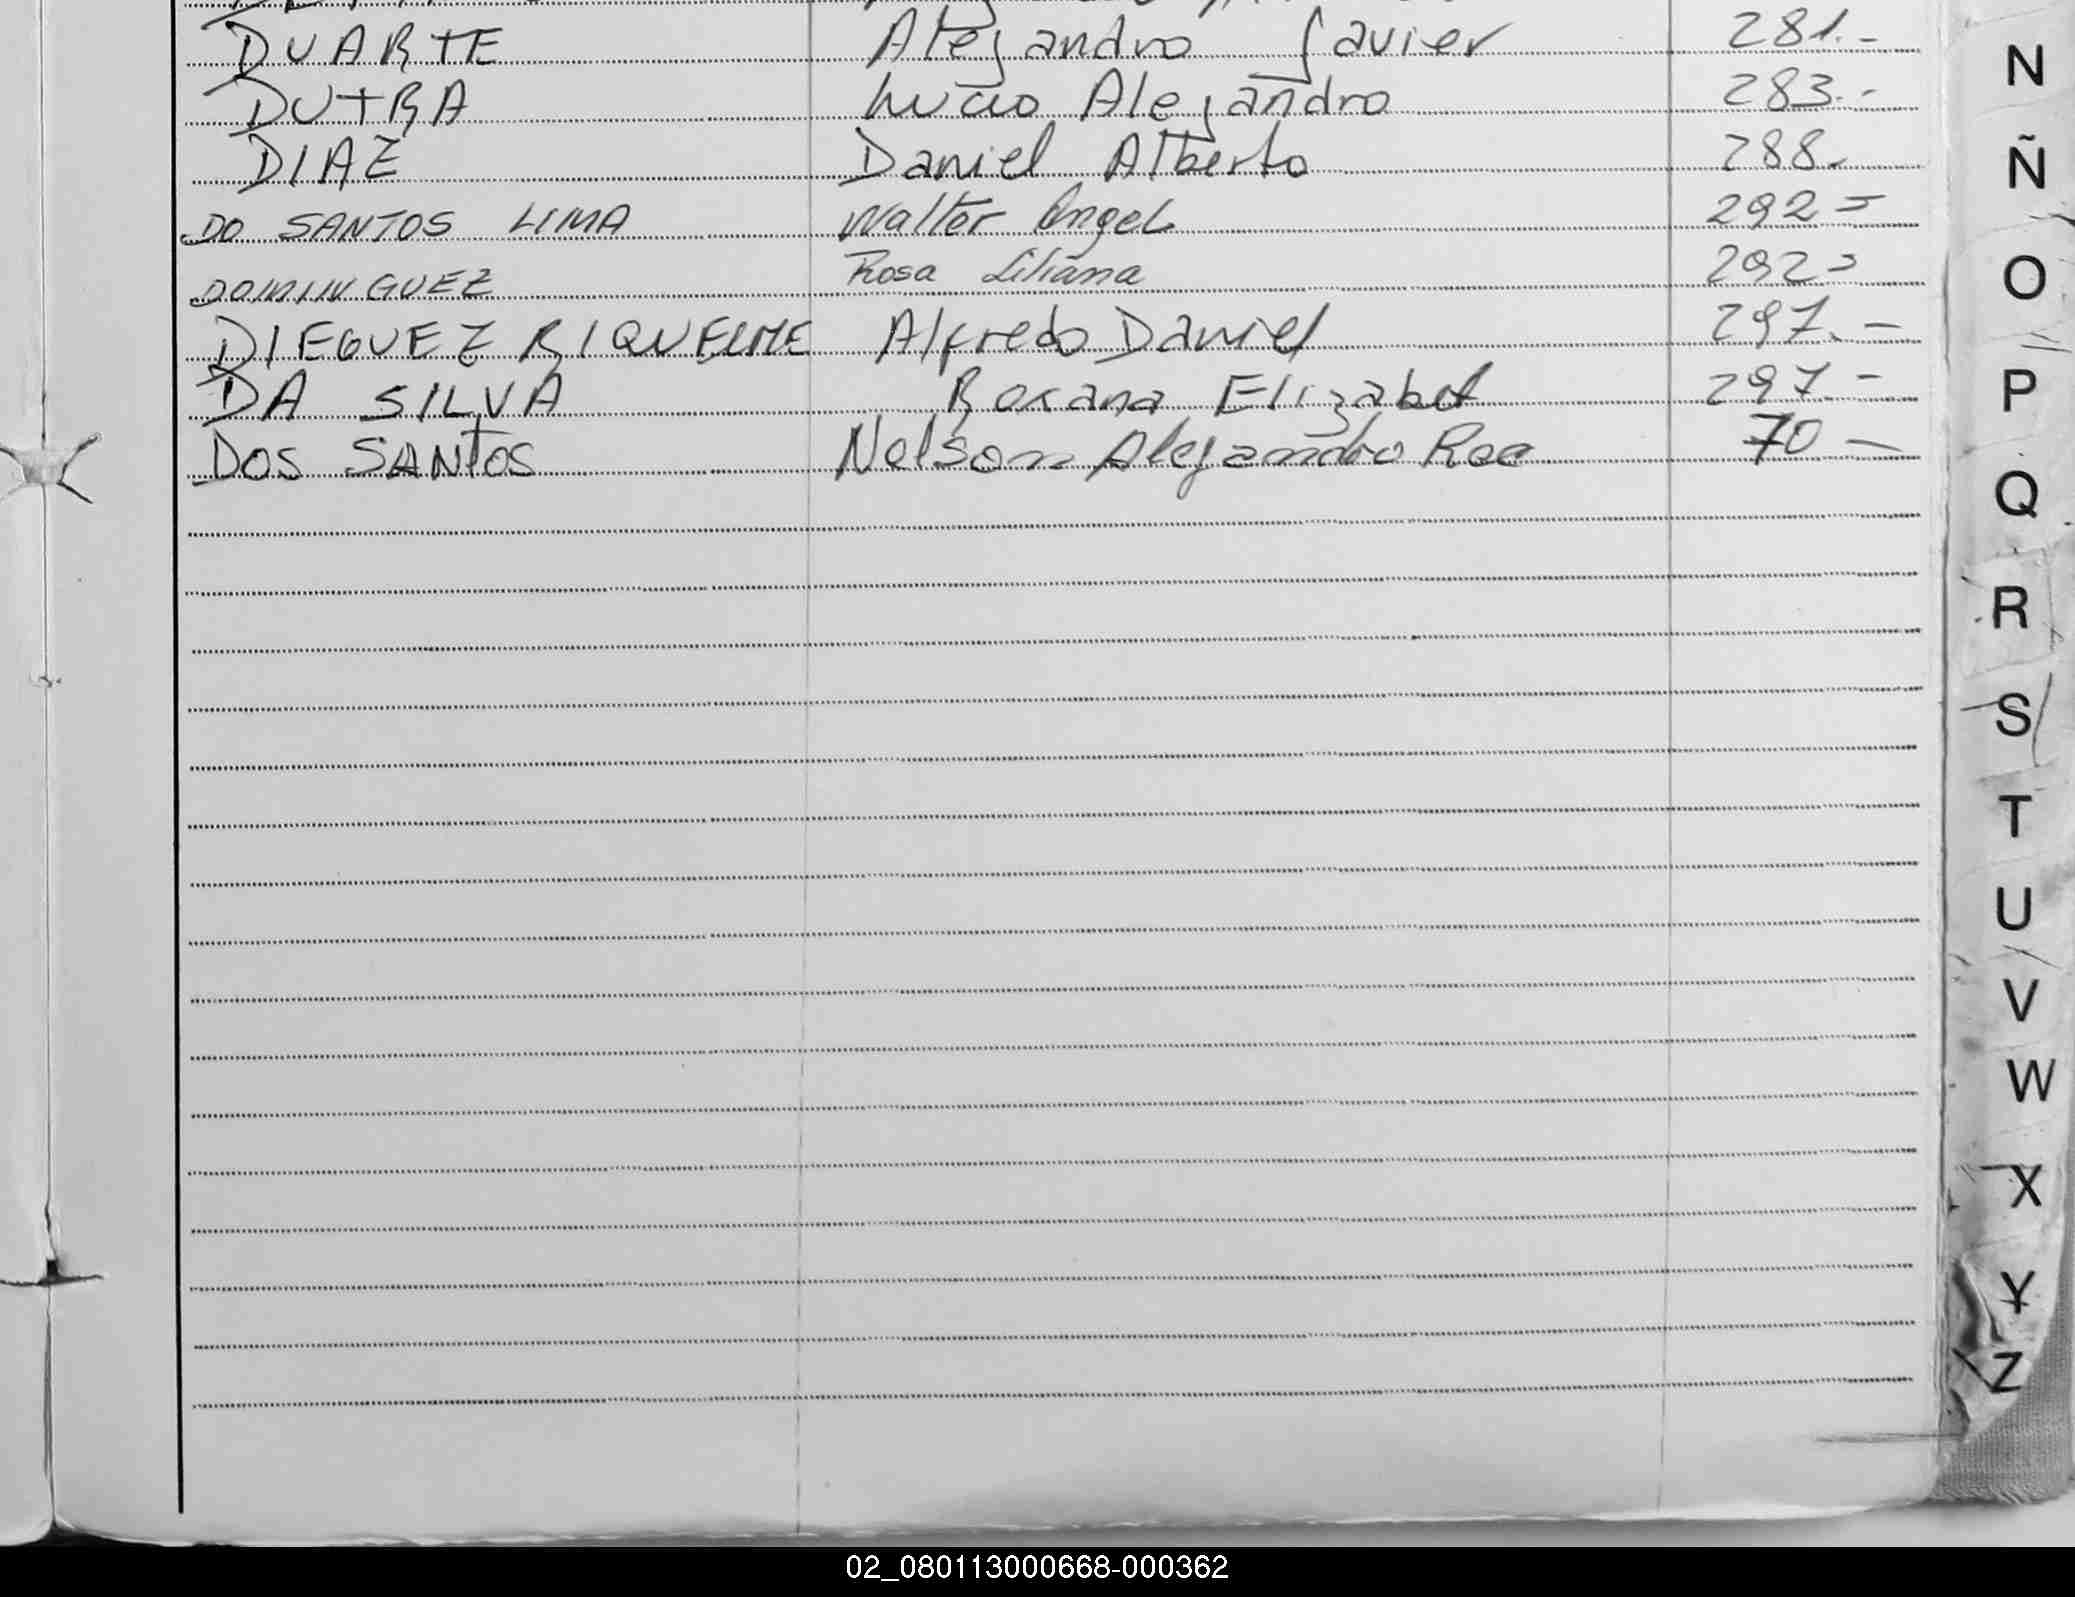 DUARTE Alejandro Javier 281.-
DUTRA Lucio Alejandro 283.-
DIAZ Daniel Alberto 288.-
DO SANTOS LIMA Walter Angel 292=
DOMINGUEZ Rosa Liliana 292=
DIEGUEZ RIQUELME Alfredo Daniel 297.-
DA SILVA Roxana Elizabet 297.-
DOS SANTOS Nelson Alejandro 70-
N
Ñ
O
P
Q
R
S
T
U
V
W
X
Y
Z
02_080113000668-000362